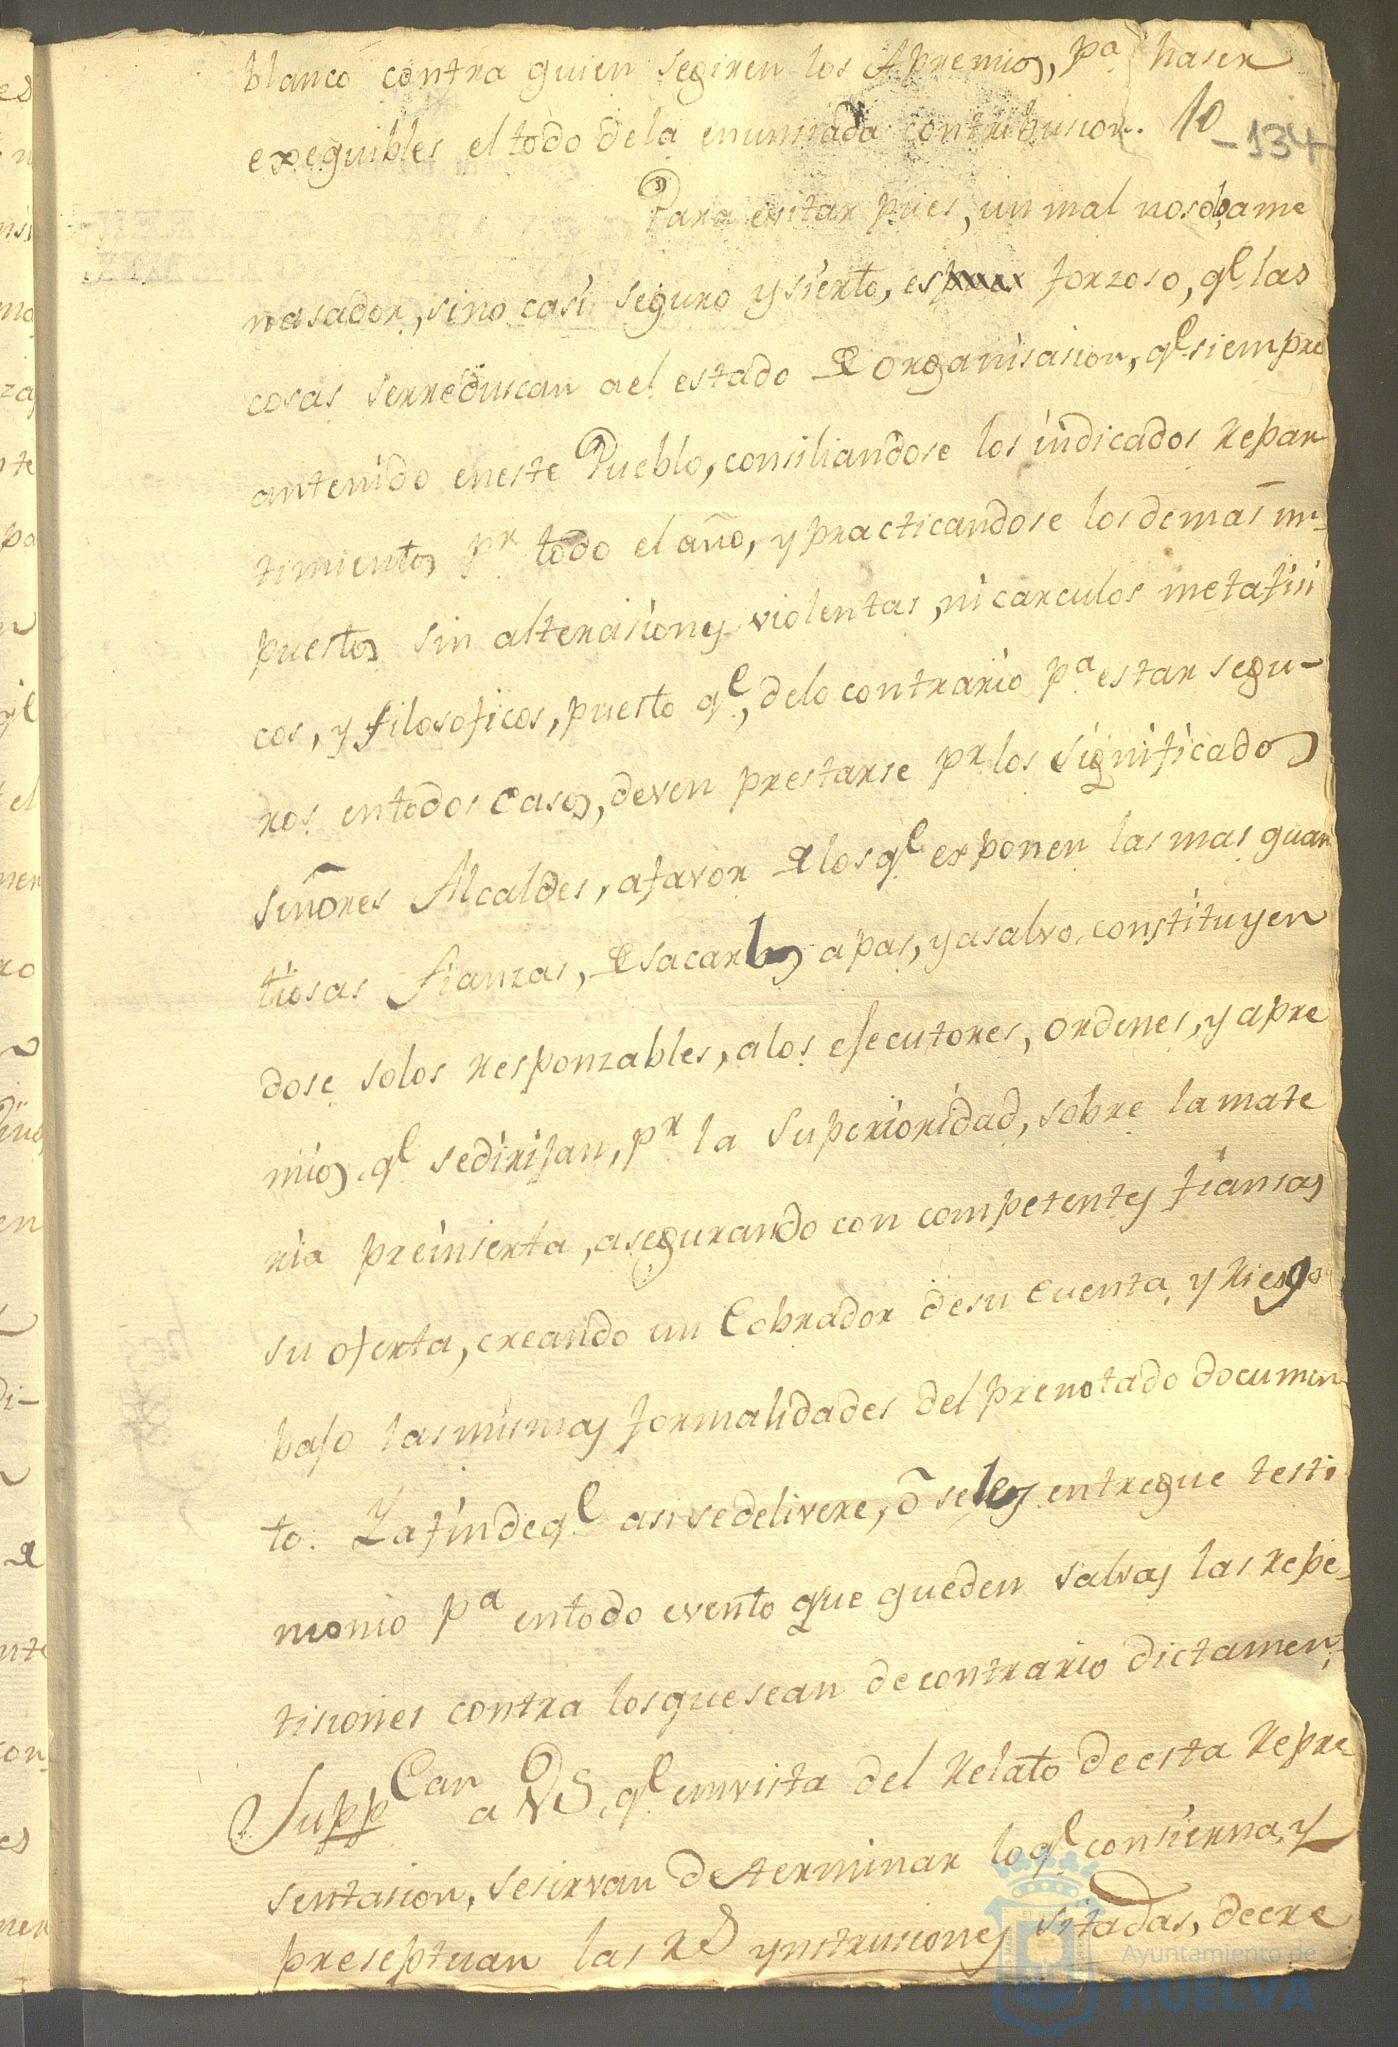 blanco contra quien segiren los Apremios, pa haser
exeguibles el todo dela enunsiada contribusion. 10 - 134
Para evitar pues, un mal nosolo ame
nasador, sino casi seguro y sierto, es forzoso, ql las
cosas serreduscan a el estado de organisasion, ql siempre
antenido eneste Pueblo, consiliandose los indicados Repar
timientos pr todo el año, y practicandose los demas im-
puestos sin alterasiones violentas, ni carculos metafisi
cos, y filosoficos, puesto ql, delo contrario pa estar segu-
ros entodos Casos, deven prestarse pr los significados
Señores Alcaldes, afavor delos ql exponen las mas guan
tiosas fianzas, de sacarlos apas, y asalvo constituyen
dose solos Responzables, a los efecutores, ordenes, y apre
mios ql sedirijan, pr la Superioridad, sobre la mate
ria preinserta, asegurando con competentes fiansas
su oferta, creando un Cobrador desu Cuenta, y Riesgo
bajo las mismas formalidades del prenotado documen-
to. Y afin de ql asi sedelivere, ó seles entregue testi
monio pa entodo evento que queden salvas las Repe-
tisiones contra los que sean de contrario dictamen,
Suppcan a VS. ql envista del Relato de esta Repre
sentasion, se sirvan determinar lo ql consierna, y
preseptuan las Rs ynstrusiones sitadas, decre
Ayuntamiento de
HUELVA